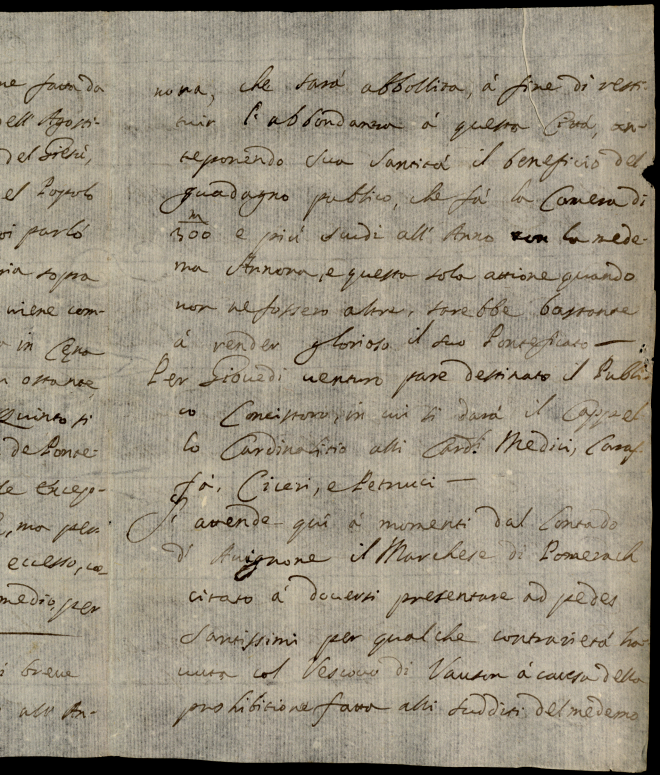 ne fatta da
dell'Agosti-
del Giesù,
el Popolo
oi parlò
ria sopra
viene com-
in Cena
ostante,
Quinto si
de Ponte-
le eccep-
, ma però
eccesso, co-
medio, per
breve
all'An-
nona, che sarà abbollita, à fine di resti-
tuir l'abbondanza à questa Città, an-
teponendo Sua Santità il beneficio del
guadagno publico, che fà la Camera di
m
300 e più Scudi all'Anno con la mede-
ma Annona, e questa sola attione quando
non ne fossero altre, sarebbe bastante
à render glorioso il suo Pontificato —
Per Giovedì venturo pare destinato il Publi-
co Concistoro, in cui si darà il Cappel-
lo Cardinalitio alli Card.i Medici, Caraf-
fa, Ciceri, e Petrucci —
S'attende quì à momenti dal Contado
d'Avignone il Marchese di
citato à doversi presentare ad pedes
Santissimi per qualche contrarietà ha-
vuta col Vescovo di à causa della
prohibitione fatta alli sudditi del medemo